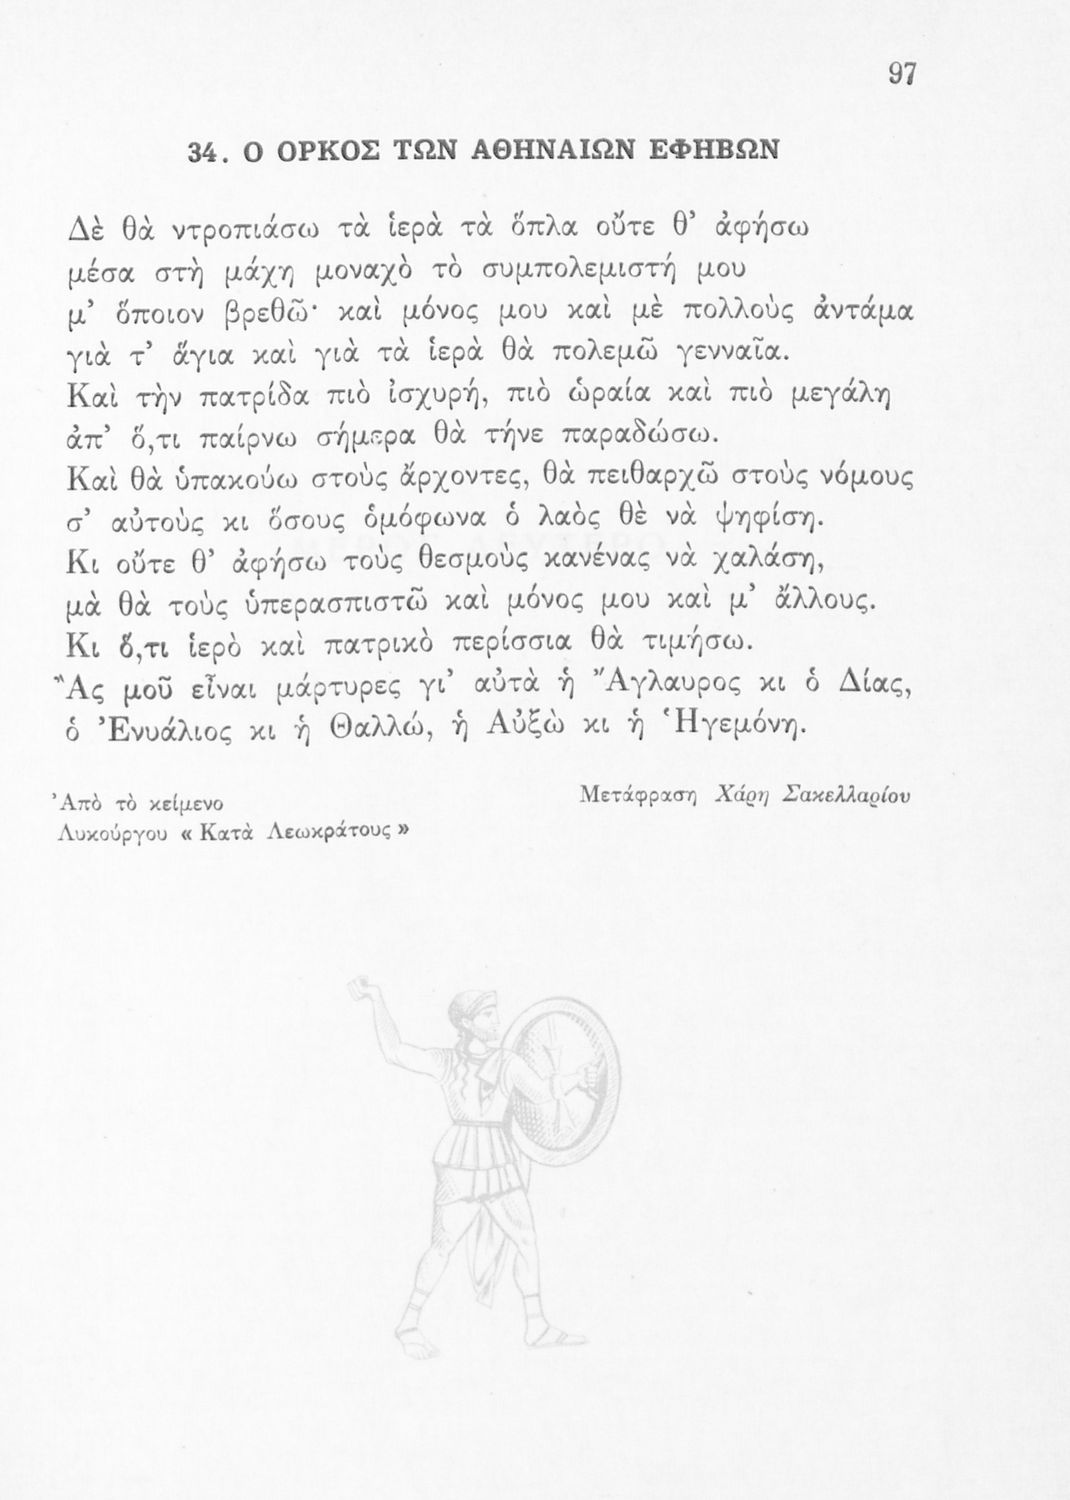 97
34. Ο ΟΡΚΟΣ ΤΩΝ ΑΘΗΝΑΙΩΝ ΕΦΗΒΩΝ
Δὲ θὰ ντροπιάσω τὰ ἱερὰ τὰ ὅπλα οὔτε θ’ ἀφήσω
μέσα στὴ μάχη μοναχὸ τὸ συμπολεμιστή μου
μ’ ὅποιον βρεθῶ· καὶ μόνος μου καὶ μὲ πολλοὺς ἀντάμα
γιὰ τ’ ἅγια καὶ γιὰ τὰ ἱερὰ θὰ πολεμῶ γενναῖα.
Καὶ τὴν πατρίδα πιὸ ἰσχυρή, πιὸ ὡραία καὶ πιὸ μεγάλη
ἀπ’ ὅ,τι παίρνω σήμερα θὰ τήνε παραδώσω.
Καὶ θὰ ὑπακούω στοὺς ἄρχοντες, θὰ πειθαρχῶ στοὺς νόμους
σ’ αὐτοὺς κι ὅσους ὁμόφωνα ὁ λαὸς θὲ νὰ ψηφίση.
Κι οὔτε θ’ ἀφήσω τοὺς θεσμοὺς κανένας νὰ χαλάση,
μὰ θὰ τοὺς ὑπερασπιστῶ καὶ μόνος μου καὶ μ’ ἄλλους.
Κι ὅ,τι ἱερὸ καὶ πατρικὸ περίσσια θὰ τιμήσω.
Ἂς μοῦ εἶναι μάρτυρες γι’ αὐτὰ ἡ Ἄγλαυρος κι ὁ Δίας,
ὁ Ἐνυάλιος κι ἡ Θαλλώ, ἡ Αὐξὼ κι ἡ Ἡγεμόνη.
Ἀπὸ τὸ κείμενο
Λυκούργου « Κατὰ Λεωκράτους »
Μετάφραση Χάρη Σακελλαρίου